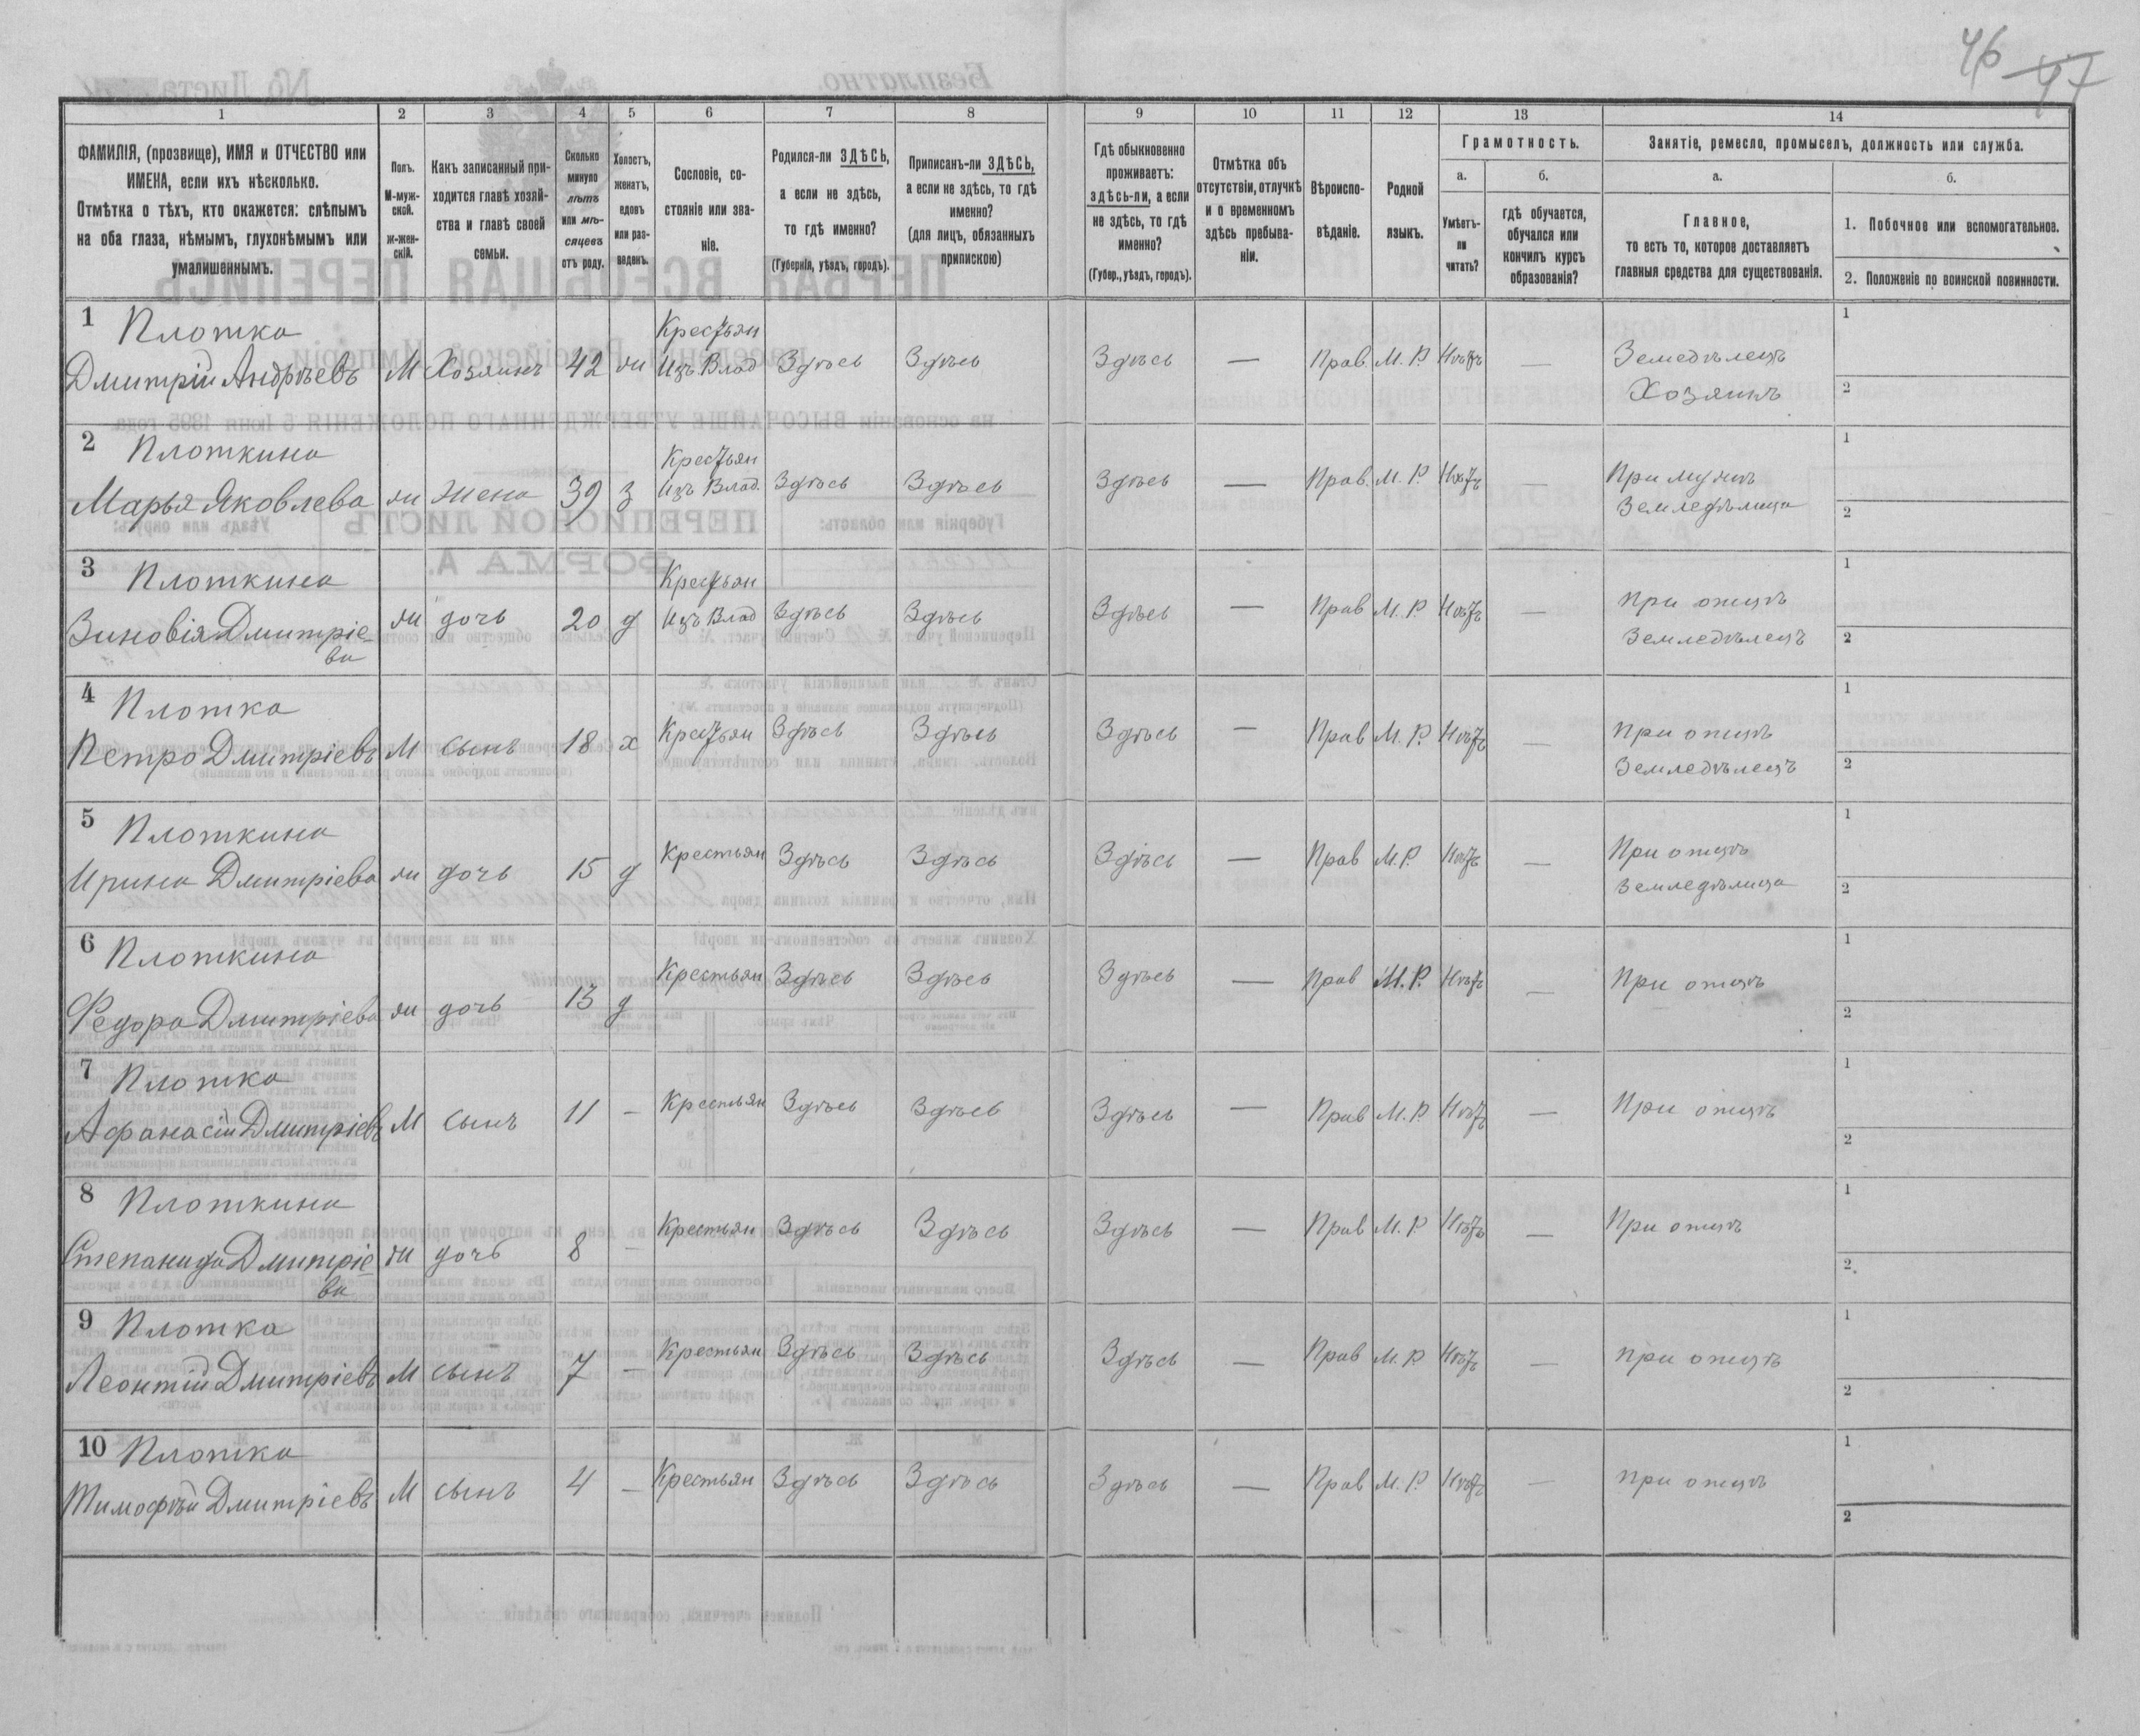 46 47
1 2 3 4 5 6 7 8 9 10 11 12 13 14
ФАМИЛІЯ, (прозвище), ИМЯ и ОТЧЕСТВО или ИМЕНА, если ихъ нѣсколько.
Отмѣтка о тѣхъ, кто окажется: слѣпымъ на оба глаза, нѣмымъ, глухонѣмымъ или умалишеннымъ.
Полъ. М-мужской. Ж-женскій.
Какъ записанный приходится главѣ хозяйства и главѣ своей семьи.
Сколько минуло лѣтъ или мѣсяцевъ отъ роду.
Холостъ, женатъ, вдовъ или разведенъ.
Сословіе, состояніе или званіе.
Родился-ли ЗДѢСЬ, а если не здѣсь, то гдѣ именно?
(Губернія, уѣздъ, городъ).
Приписанъ-ли ЗДѢСЬ, а если не здѣсь, то гдѣ именно?
(для лицъ, обязанныхъ припискою)
Гдѣ обыкновенно проживаетъ: здѣсь-ли, а если не здѣсь, то гдѣ именно?
(Губер., уѣздъ, городъ).
Отмѣтка объ отсутствіи, отлучкѣ и о временномъ здѣсь пребываніи.
Вѣроисповѣданіе.
Родной языкъ.
Грамотность.
а. Умѣетъ-ли читать?
б. гдѣ обучается, обучался или кончилъ курсъ образованія?
Занятіе, ремесло, промыселъ, должность или служба.
а. Главное, то есть то, которое доставляетъ главныя средства для существованія.
б.
1. Побочное или вспомогательное.
2. Положеніе по воинской повинности.
1 Плотка Крестьян 1
Дмитрій Андрѣевъ М Хозяинъ 42 ж Изъ Влад Здѣсь Здѣсь Здѣсь — Прав. М. Р. Нѣтъ — Земледѣлецъ
Хозяинъ 2
2 Плоткина Крестьян 1
Марья Яковлева ж жена 39 з Изъ Влад. Здѣсь Здѣсь Здѣсь — Прав. М. Р. Нѣтъ — При мужѣ
Земледѣлица 2
3 Плоткина Крестьян 1
Зиновія Дмитріева ж дочь 20 д Изъ Влад Здѣсь Здѣсь Здѣсь — Прав М. Р. Нѣтъ — при отцѣ
Земледѣлецъ 2
4 Плотка 1
Петро Дмитріевъ М сынъ 18 х Крестьян Здѣсь Здѣсь Здѣсь — Прав М. Р. Нѣтъ — при отцѣ
Земледѣлецъ 2
5 Плоткина 1
Ирина Дмитріева ж дочь 15 д Крестьян Здѣсь Здѣсь Здѣсь — Прав М. Р. Нѣтъ — При отцѣ
Земледѣлица 2
6 Плоткина 1
Федора Дмитріева ж дочь 13 д Крестьян Здѣсь Здѣсь Здѣсь — Прав М. Р. Нѣтъ — При отцѣ
2
7 Плотка 1
Афанасій Дмитріевъ М сынъ 11 — Крестьян Здѣсь Здѣсь Здѣсь — Прав М. Р. Нѣтъ — При отцѣ
2
8 Плоткина 1
Степанида Дмитріева ж дочь 8 — Крестьян Здѣсь Здѣсь Здѣсь — Прав М. Р. Нѣтъ — При отцѣ
2
9 Плотка 1
Леонтій Дмитріевъ М сынъ 7 — Крестьян Здѣсь Здѣсь Здѣсь — Прав М. Р Нѣтъ — при отцѣ
2
10 Плотка 1
Тимофѣй Дмитріевъ М сынъ 4 — Крестьян Здѣсь Здѣсь Здѣсь — Прав М. Р. Нѣтъ — при отцѣ
2